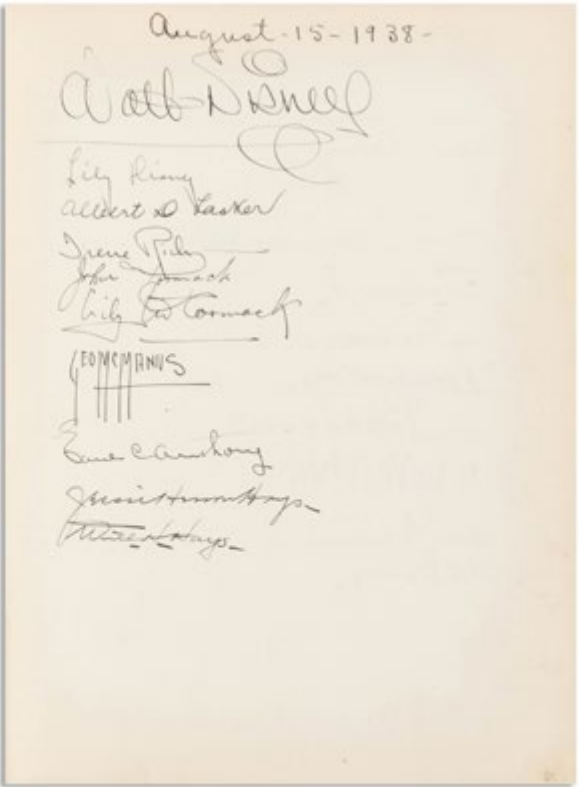 August-15-1938-
Walt Disney
Lily Disney
Albert D Lasker
Irene Rich
John McCormack
Lily McCormack
GEO MCMANUS
C Armstrong
Jessie Herron Hays-
Will H. Hays-